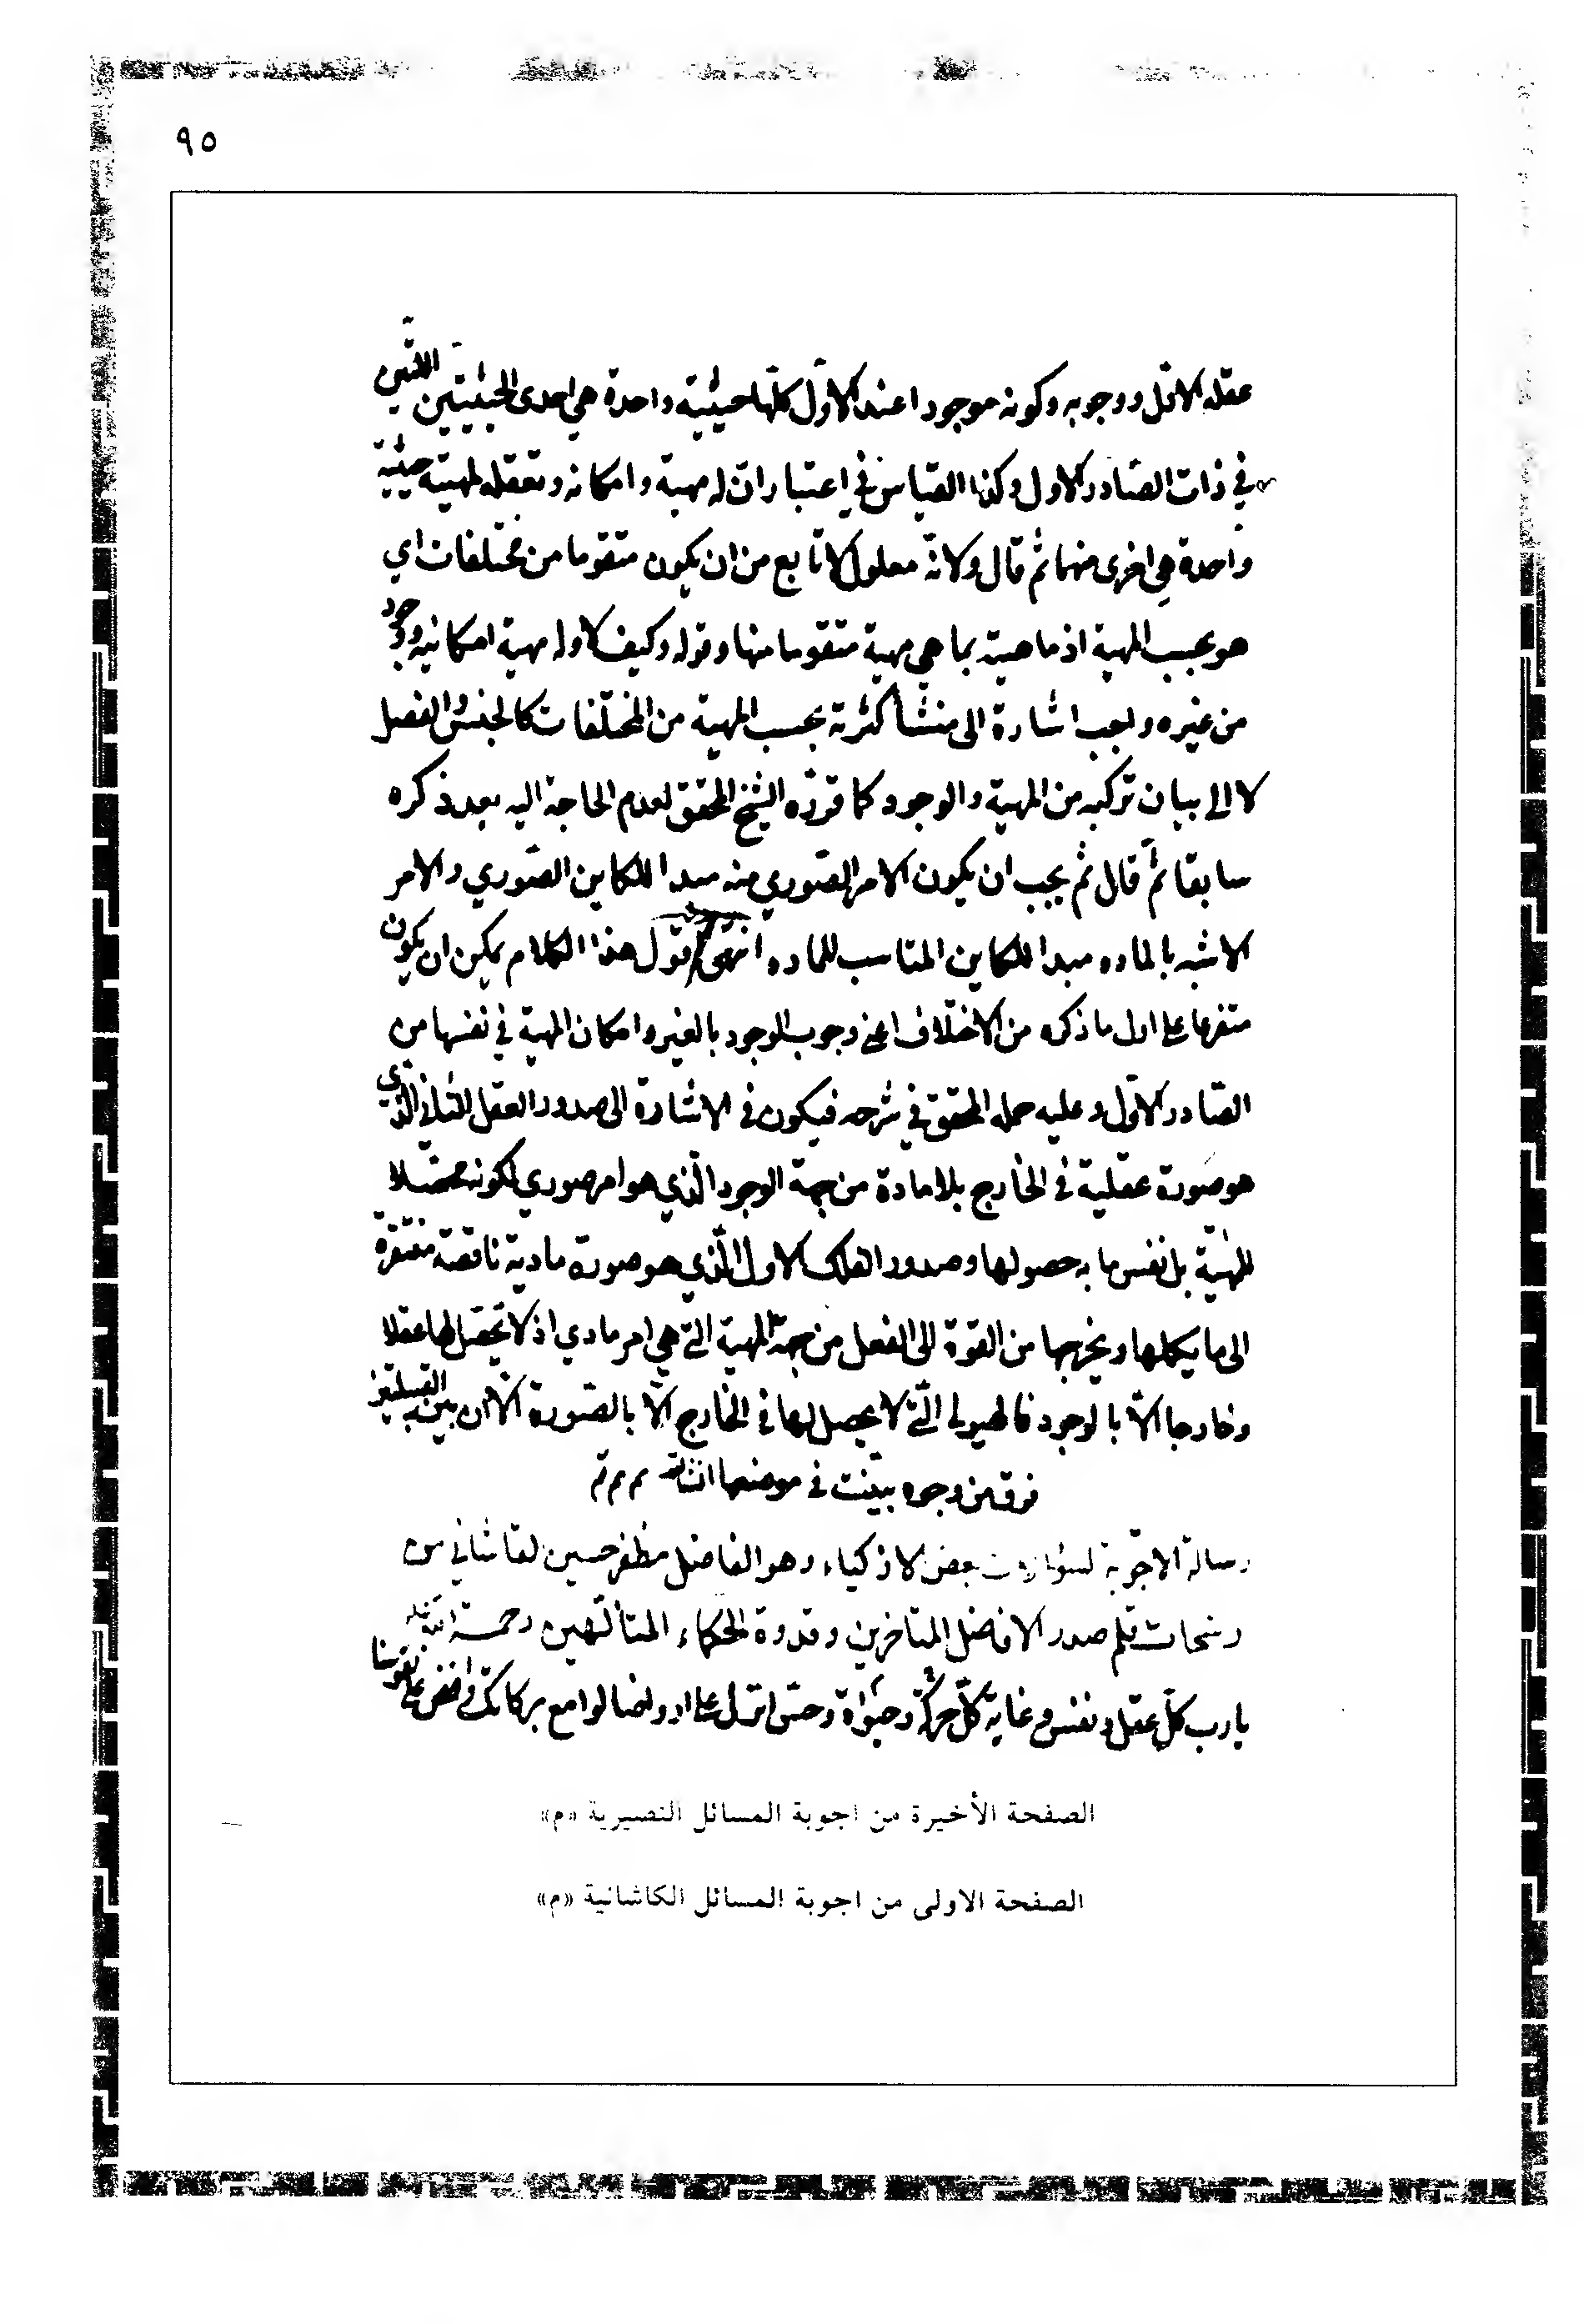 ٩٥
عقله الاول ووجوبه وكونه موجودا عند الاوّل كلّها حيثية واحدة هي احدى الحيثيتين اللتين
في ذات الصّادر الاول وكذا القياس في اعتبارات له مهية وامكانه وتعقله لمهيته حيثية
واحدة هي اخرى منهما ثم قال ولانّه معلول لا مانع من ان يكون متقوما من مختلفات اي
هو بحسب المهية اذ ماهيته بما هي مهية متقوما منها وقوله وكيف لا وله مهية امكانيه ووجود
من غيره واجب اشارة الى منشأ كثرته بحسب المهية من المختلفات كالجنس والفصل
لا الى بيان تركبه من المهية والوجود كما قرّره الشيخ المحقق لعدم الحاجة اليه بعد ذكره
سابقا ثمّ قال ثم يجب ان يكون الامر الصّوري منه مبدا للكاين الصّوري والامر
الاشبه بالماده مبدا للكاين المناسب للماده انتهى اقول هذا الكلام يمكن ان يكون
متفرعا على اول ما ذكره من الاختلاف اعني وجوب الوجود بالغير وامكان المهية في نفسها من
الصّادر الاوّل وعليه حمله المحقق في شرحه فيكون في الاشارة الى صدور العقل الثاني الذي
هو صورة عقلية في الخارج بلا مادة من جهة الوجود الّذي هو امر صوري لكونه محصّلا
للمهيّة بل نفس ما به حصولها وصدور الفلك الاول الّذي هو صورة مادية ناقصة مفتقرة
الى ما يكملها ويخرجها من القوة الى الفعل من جهة المهية التي هي امر مادي اذ لا تحصّل لها عقلا
وخارجا الاّ بالوجود كالهيولى الّتي لا يحصل لها في الخارج الاّ بالصّورة الاّ ان بين القبيلتين
فرق من وجوه بيّنت في موضعها انشالله م م تم
رسالة الاجوبة لسؤالات بعض الاذكياء وهو الفاضل مظفر حسين القاشاني من
رشحات قلم صدر الافاضل المتاخرين وقدوة الحكماء المتألّهين رحمة الله
يا رب كلّ عقل ونفس وغاية كلّ حركة وحيوة وحسّ انزل على ارواحنا لوامع بركاتك وافض على نفوسنا
الصفحة الأخيرة من اجوبة المسائل النصيرية «م»
الصفحة الاولى من اجوبة المسائل الكاشانية «م»